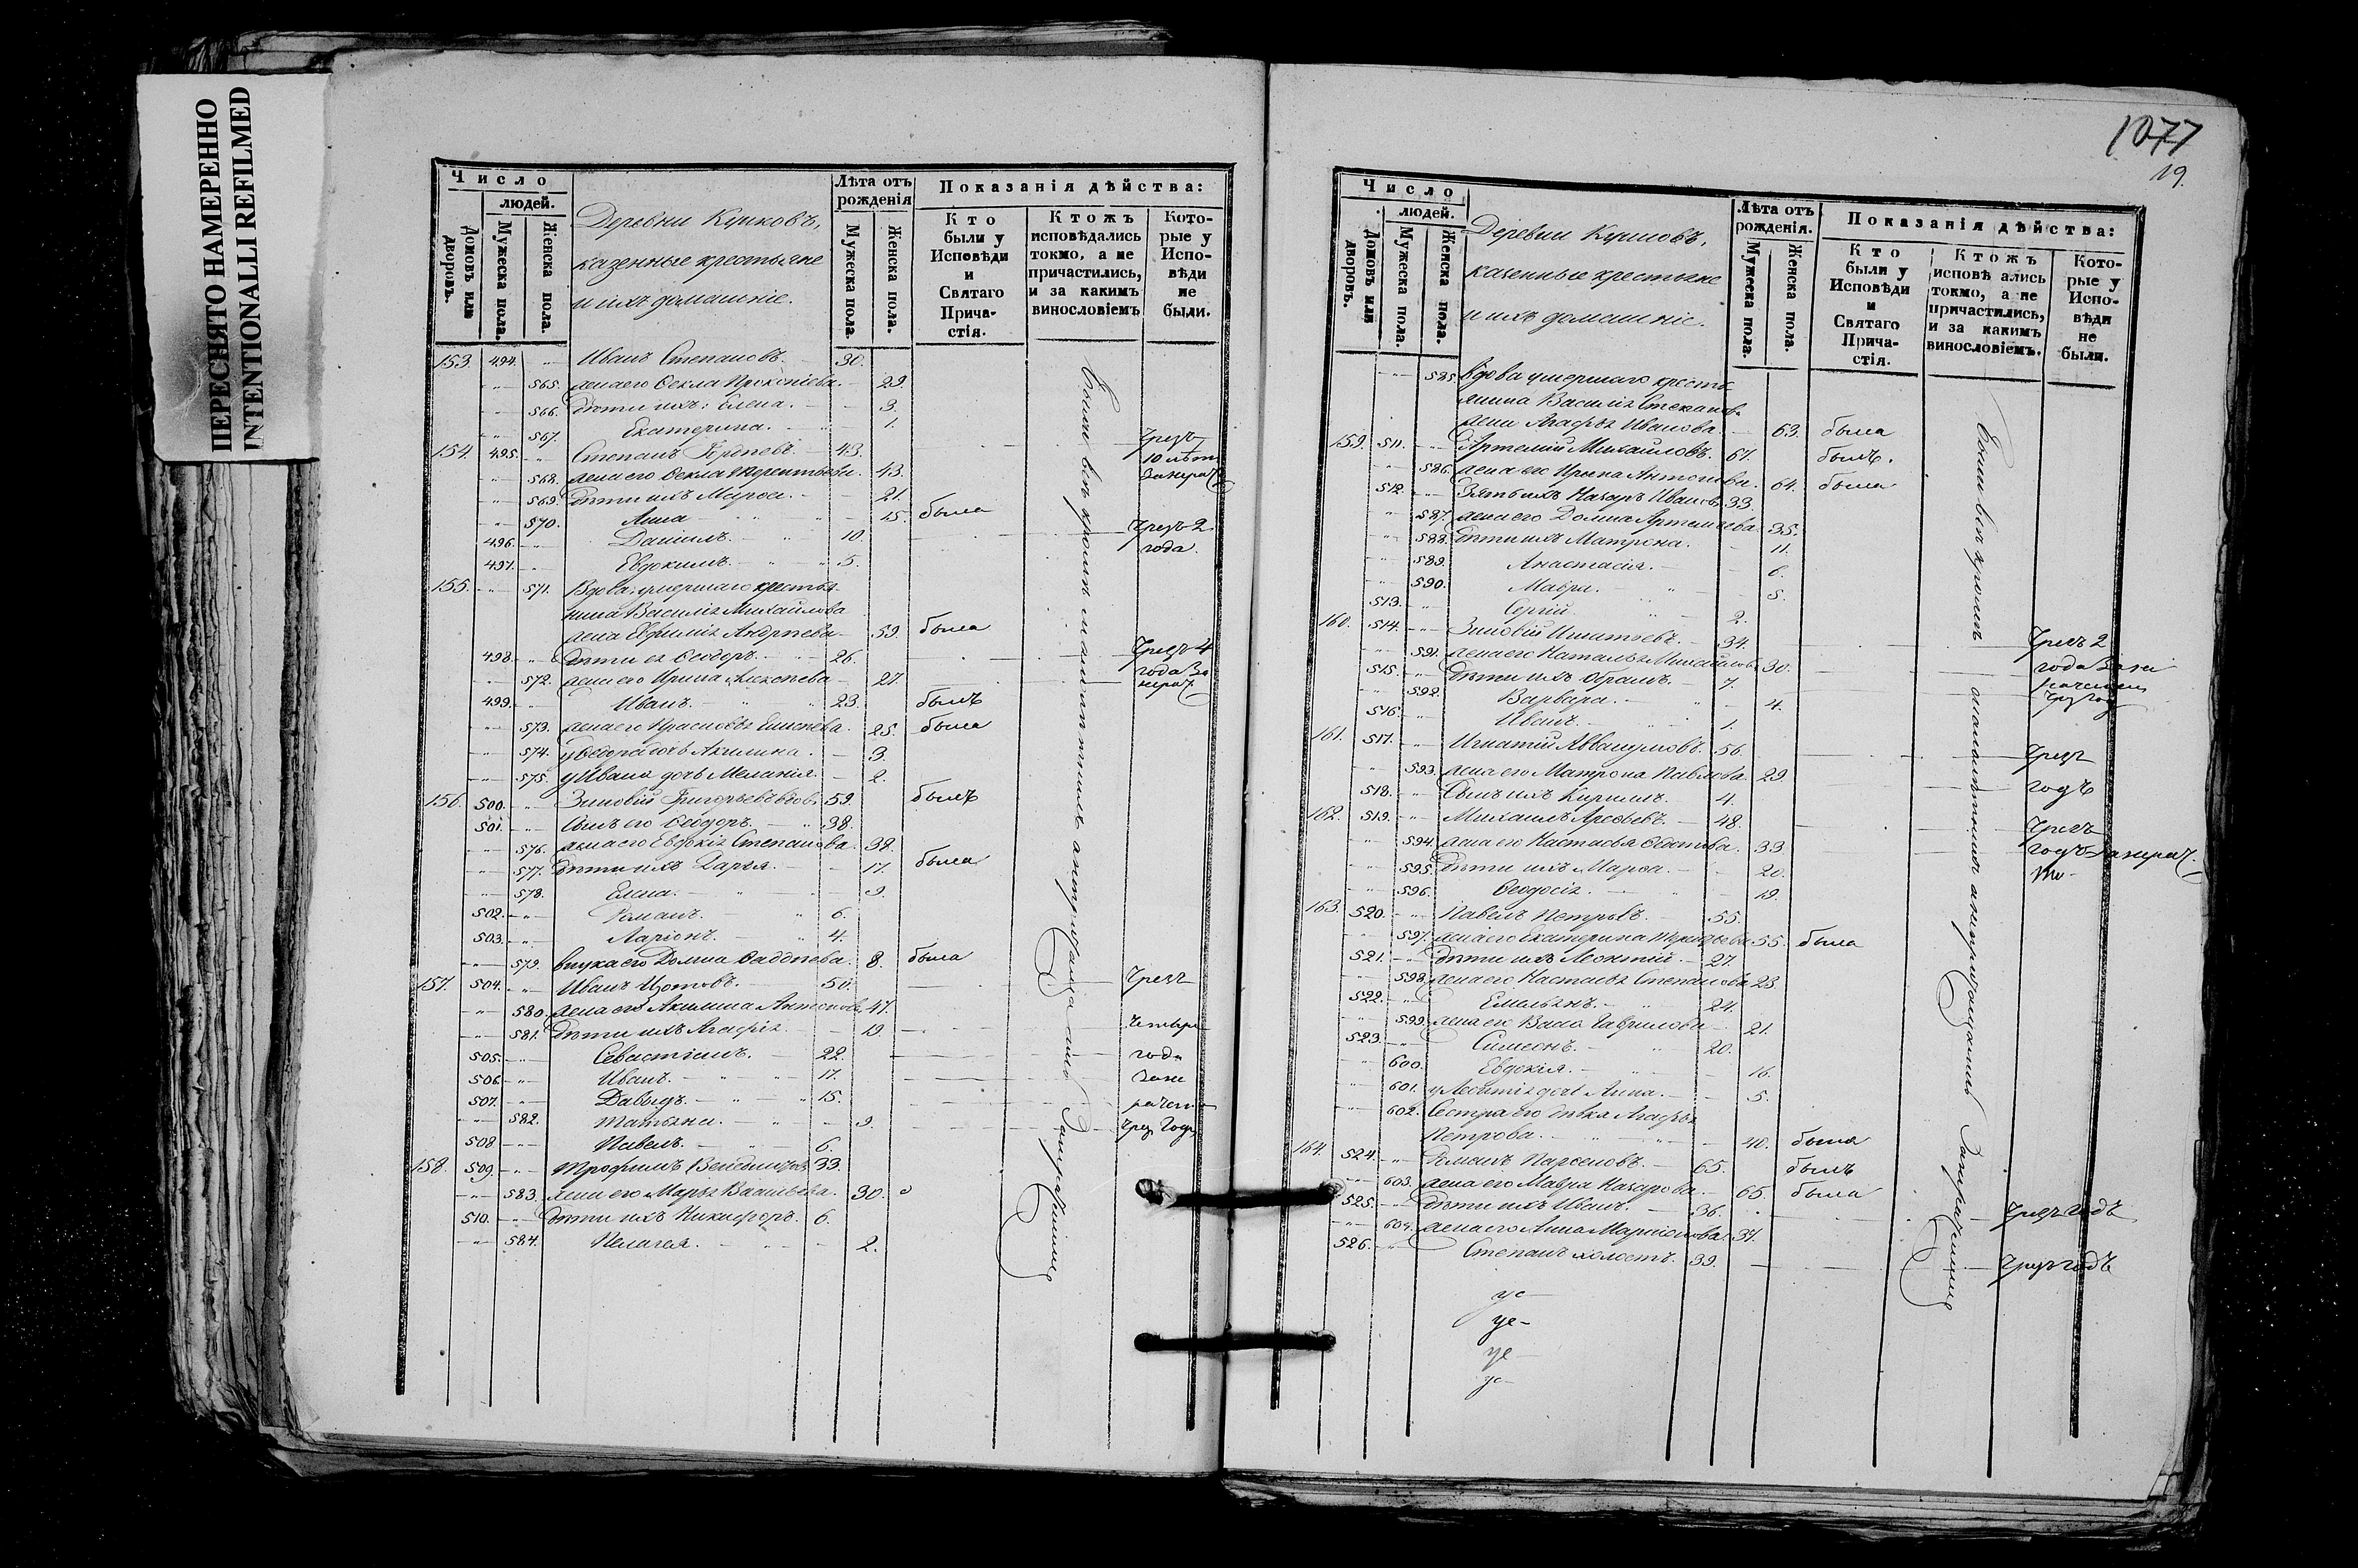 ПЕРЕСНЯТО НАМЕРЕННО
INTENTIONALLI REFILMED
Число
людей.
Домовъ или дворовъ.
Мужеска пола.
Женска пола.
Деревни
казенные крестьяне
и ихъ домашніе.
Лѣта отъ рожденія
Мужеска пола.
Женска пола.
Показанія дѣйства:
Кто были у Исповѣди и Святаго Причастія.
Ктожъ исповѣдались токмо, а не причастились, и за какимъ винословіемъ
Которые у Исповѣди не были.
153. 494. Иванъ Степановъ. 30.
565. жена его Ѳекла Прокопіева. 29.
566. дѣти ихъ: Елена. 3.
567. Екатерина. 1.
154. 495. Степанъ 43. Чрезъ 10 лѣтъ
568. жена его Ѳекла Терентьева. 43.
569. дѣти ихъ Марѳа. 21.
570. Анна 15. была
496. Даніилъ. 10. Чрезъ 2 года.
497. Евдокимъ. 5.
155. 571. Вдова умершаго крестья
нина Василія Михайлова
жена Евфимія Андреева 59. была
498. дѣти ея Ѳеодоръ. 26. Чрезъ 4 года
572. жена его Ирина Алексѣева 27.
499. Иванъ. 23. былъ
573. жена его 25. была
574. у Ѳедора дочь Акилина. 3.
575. у Ивана дочь Меланія. 2.
156. 500. Зиновій Григорьевъ вдов. 59. былъ
501. Сынъ его Ѳеодоръ. 38.
576. жена его Евдокія Степанова. 38.
577. дѣти ихъ Дарья. 17. была
578. Елена. 9.
502. Романъ. 6.
503. Ларіонъ. 4.
579. внука его Домна Ѳаддѣева. 8. была
157. 504. Иванъ Изотовъ. 50. Чрезъ
580. жена его Акилина Антонова 47.
581. дѣти ихъ Агафія. 19. четыре
505. Севастіанъ. 22. года
506. Иванъ. 17.
507. Давыдъ. 15.
582. Татьяна. 9.
508. Павелъ. 6.
158. 509. Трофимъ 33.
583. жена его Марья Васильева. 30.
510. дѣти ихъ Никифоръ. 6.
584. Пелагея. 2.
Были всѣ кромѣ малолѣтнихъ
1077
19.
Число
людей.
Домовъ или дворовъ.
Мужеска пола.
Женска пола.
Деревни
казенные крестьяне
и ихъ домашніе.
Лѣта отъ рожденія.
Мужеска пола.
Женска пола.
Показанія дѣйства:
Кто были у Исповѣди и Святаго Причастія.
Ктожъ исповѣ ались токмо, а не причастились, и за какимъ винословіемъ.
Которые у Исповѣди не были.
585. Вдова умершаго кресть
янина Василія Степанов.
жена Агафья Иванова. 63. была
159. 511. Артемій Михайловъ. 67. былъ.
586. жена его Ирина Антонова. 64. была
512. Зять ихъ Назаръ Иванов. 33.
587. жена его Домна Артемьева 35.
588. дѣти ихъ Матрона. 11.
589. Анастасія. 6.
590. Мавра. 5.
513. Сергій. 2.
160. 514. Зиновій Игнатьевъ. 34. Чрезъ 2 года
591. жена его Наталья Михайлов. 30.
515. дѣти ихъ Абрамъ. 7.
592. Варвара. 4.
516. Иванъ. 1.
161. 517. Игнатій Аввакумовъ. 56. Чрезъ
593. жена его Матрона Павлова. 29. годъ
518. Сынъ ихъ Кирилъ. 4.
162. 519. Михаилъ 48. Чрезъ
594. жена его Настасья 33. годъ
595. дѣти ихъ Марѳа. 20.
596. Ѳеодосія. 19.
163. 520. Павелъ Петровъ. 55.
597. жена его Екатерина 55. была
521. дѣти ихъ Леонтій. 27.
598. жена его Настасья Степанова 23.
522. Емельянъ. 24.
599. жена его Васса Гаврилова 21.
523. Симеонъ. 20.
600. Евдокія. 16.
601. у Леонтія дочь Анна. 5.
602. Сестра его дѣвка Агафья
Петрова. 40. была
164. 524. Романъ Парѳеновъ. 65. былъ
603. жена его Мавра Назарова. 65. была
525. дѣти ихъ Иванъ. 36. Чрезъ годъ
604. жена его Анна 37.
526. Степанъ холостъ. 39. Чрезъ годъ
Были всѣ кромѣ малолѣтнихъ